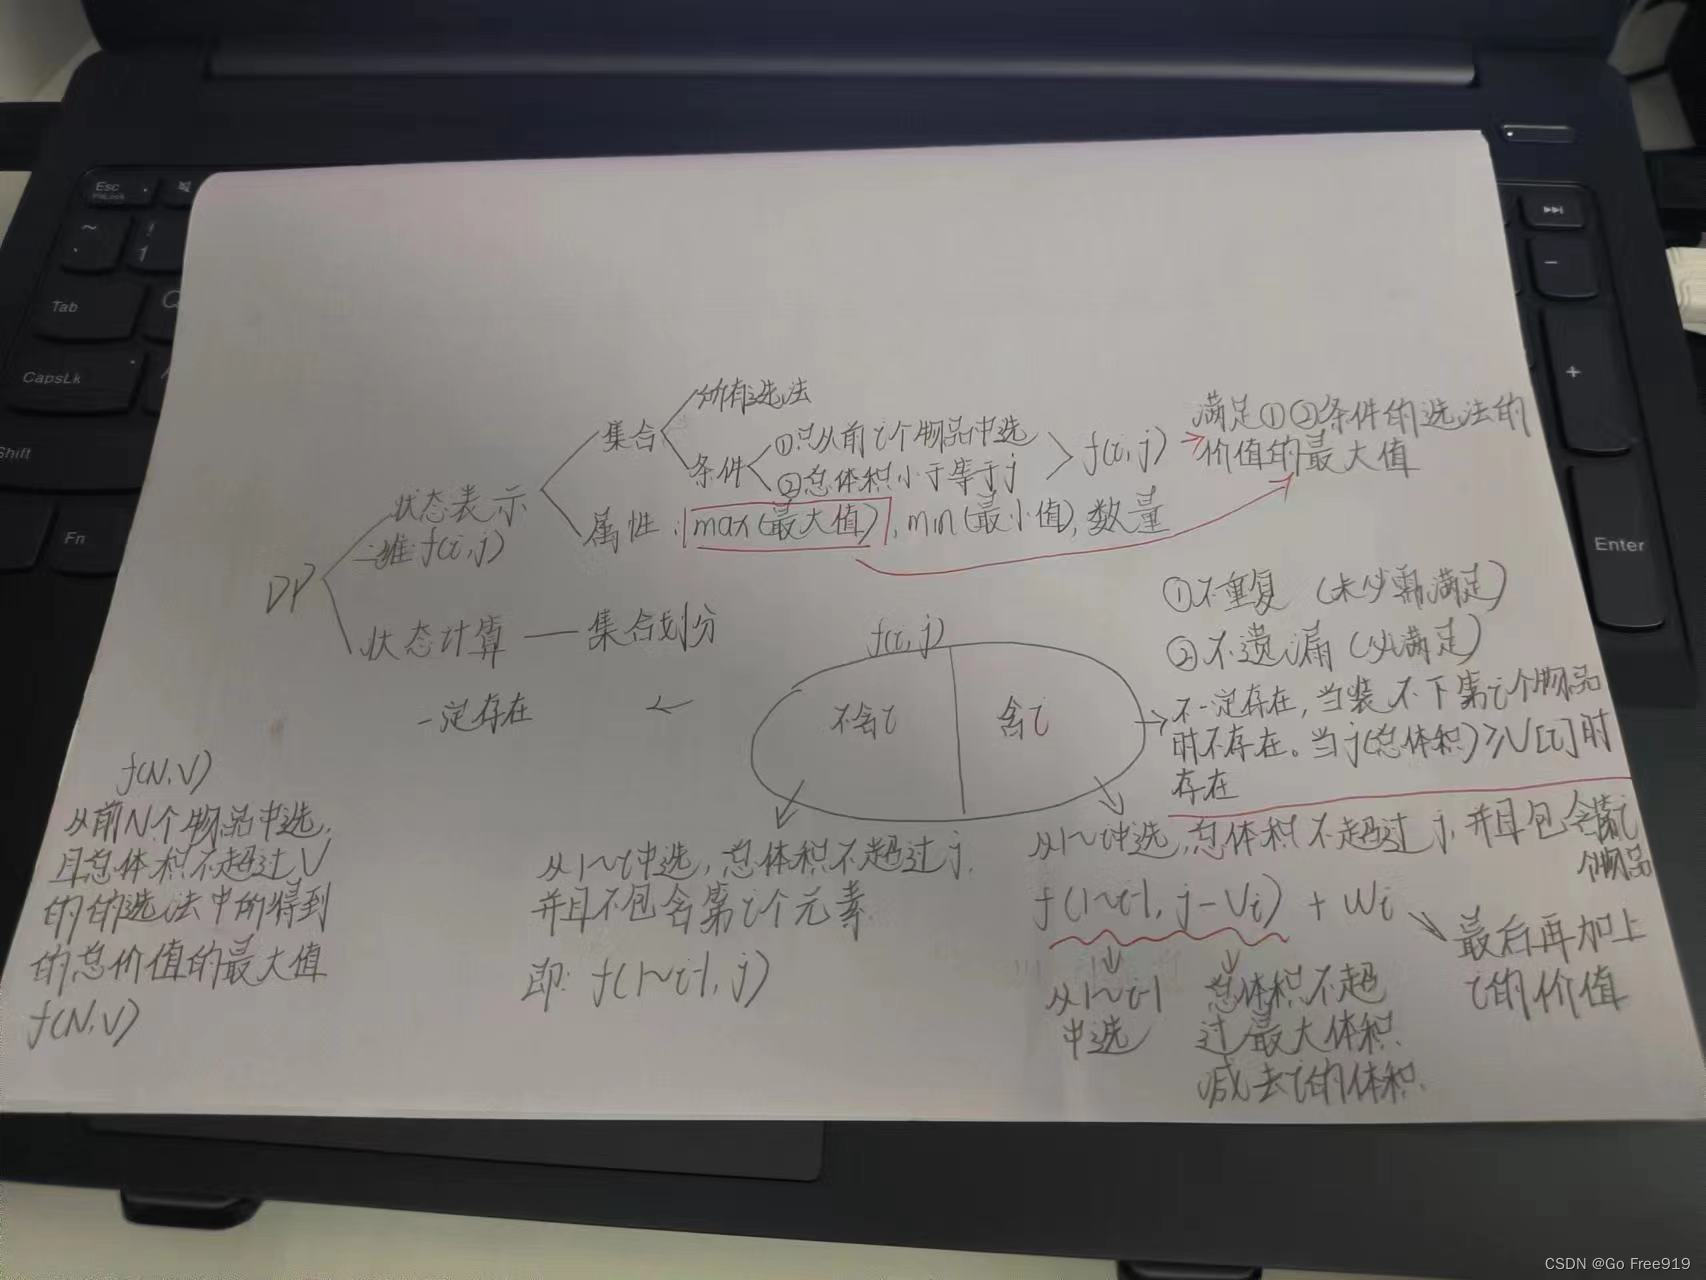 所有选法
集合
条件
①只从前i个物品中选
②总体积小于等于j
f(i,j)
满足①②条件的选法的
价值的最大值
状态表示
二维:f(i,j)
属性:max(最大值),min(最小值),数量
DP
状态计算 — 集合划分
①不重复(未必需满足)
②不遗漏(必满足)
f(i,j)
不含i
含i
一定存在
不一定存在,当装不下第i个物品
时不存在。当j(总体积)≥V[i]时
存在
f(N,V)
从前N个物品中选,
且总体积不超过V
的的选法中所得到
的总价值的最大值
f(N,V)
从1~i中选,总体积不超过j,
并且不包含第i个元素
即:f(1~i-1,j)
从1~i中选,总体积不超过j,并且包含第i
个物品
f(1~i-1,j-Vi)+Wi
从1~i-1
中选
总体积不超
过最大体积
减去i的体积.
最后再加上
i的价值
Esc
FnLock
~
`
!
1
Tab
Q
CapsLk
Shift
Fn
−
+
Enter
CSDN @Go Free919